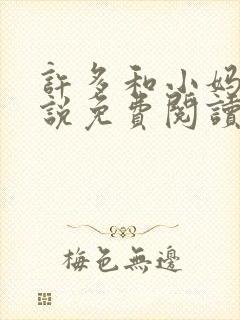 許多和小媽
說免費閱讀
梅色無邊